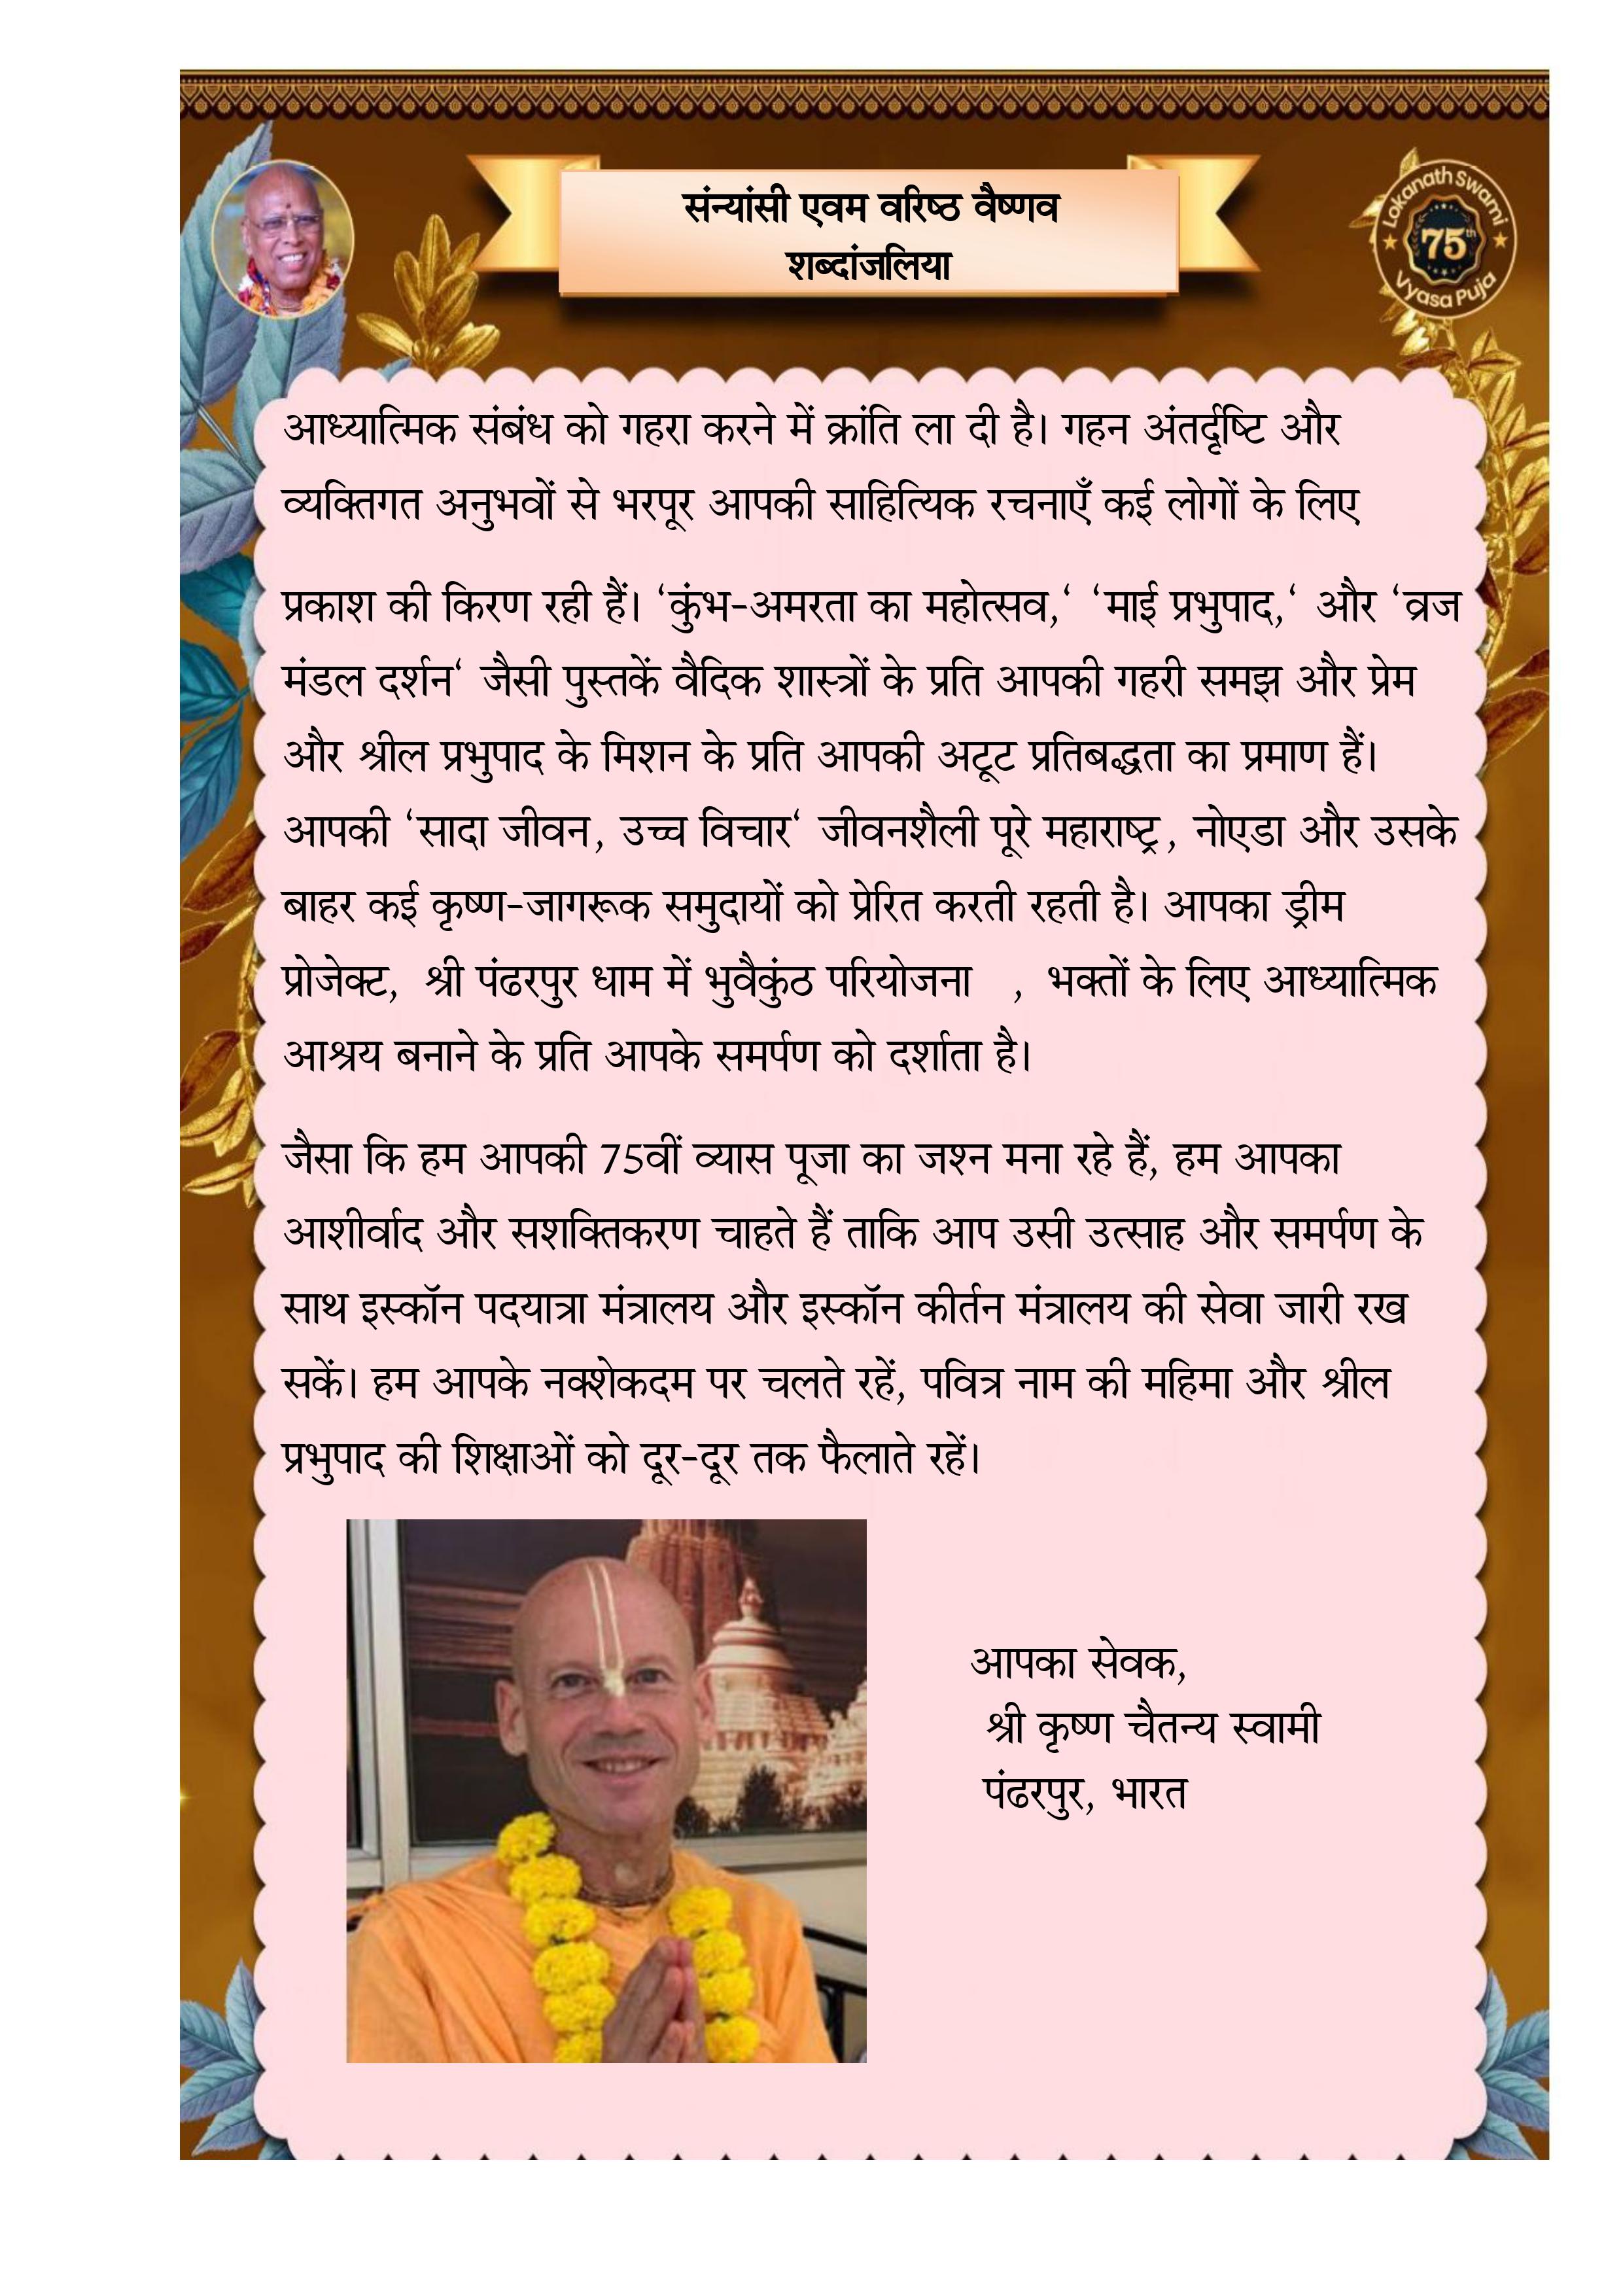 संन्यांसी एवम वरिष्ठ वैष्णव
शब्दांजलिया
Lokanath Swami
75th
Vyasa Puja
आध्यात्मिक संबंध को गहरा करने में क्रांति ला दी है। गहन अंतर्दृष्टि और
व्यक्तिगत अनुभवों से भरपूर आपकी साहित्यिक रचनाएँ कई लोगों के लिए
प्रकाश की किरण रही हैं। ‘कुंभ-अमरता का महोत्सव,‘ ‘माई प्रभुपाद,‘ और ‘व्रज
मंडल दर्शन‘ जैसी पुस्तकें वैदिक शास्त्रों के प्रति आपकी गहरी समझ और प्रेम
और श्रील प्रभुपाद के मिशन के प्रति आपकी अटूट प्रतिबद्धता का प्रमाण हैं।
आपकी ‘सादा जीवन, उच्च विचार‘ जीवनशैली पूरे महाराष्ट्र, नोएडा और उसके
बाहर कई कृष्ण-जागरूक समुदायों को प्रेरित करती रहती है। आपका ड्रीम
प्रोजेक्ट, श्री पंढरपुर धाम में भुवैकुंठ परियोजना , भक्तों के लिए आध्यात्मिक
आश्रय बनाने के प्रति आपके समर्पण को दर्शाता है।
जैसा कि हम आपकी 75वीं व्यास पूजा का जश्न मना रहे हैं, हम आपका
आशीर्वाद और सशक्तिकरण चाहते हैं ताकि आप उसी उत्साह और समर्पण के
साथ इस्कॉन पदयात्रा मंत्रालय और इस्कॉन कीर्तन मंत्रालय की सेवा जारी रख
सकें। हम आपके नक्शेकदम पर चलते रहें, पवित्र नाम की महिमा और श्रील
प्रभुपाद की शिक्षाओं को दूर-दूर तक फैलाते रहें।
आपका सेवक,
श्री कृष्ण चैतन्य स्वामी
पंढरपुर, भारत